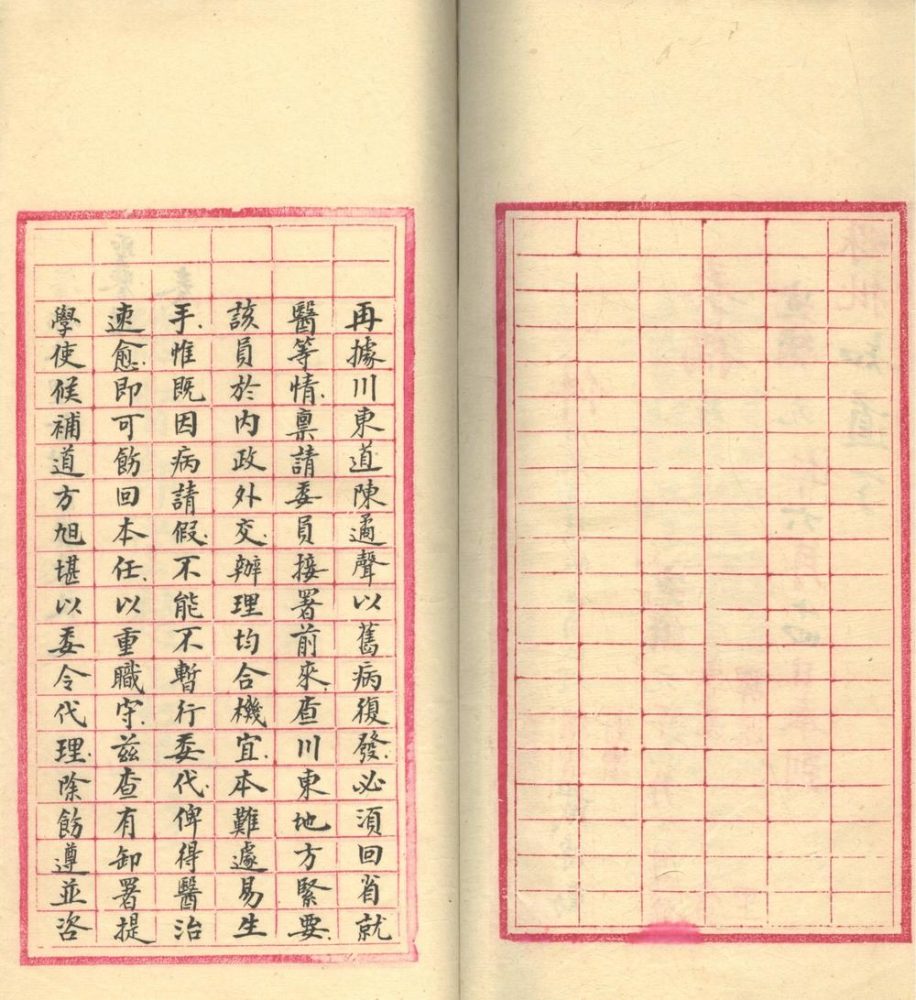 再據川東道陳遹聲以舊病復發必須回省就
醫等情稟請委員接署前來查川東地方緊要
該員於内政外交辦理均合機宜本難遽易生
手惟既因病請假不能不暫行委代俾得醫治
速愈即可飭回本任以重職守兹查有卸署提
學使候補道方旭堪以委令代理除飭遵並咨